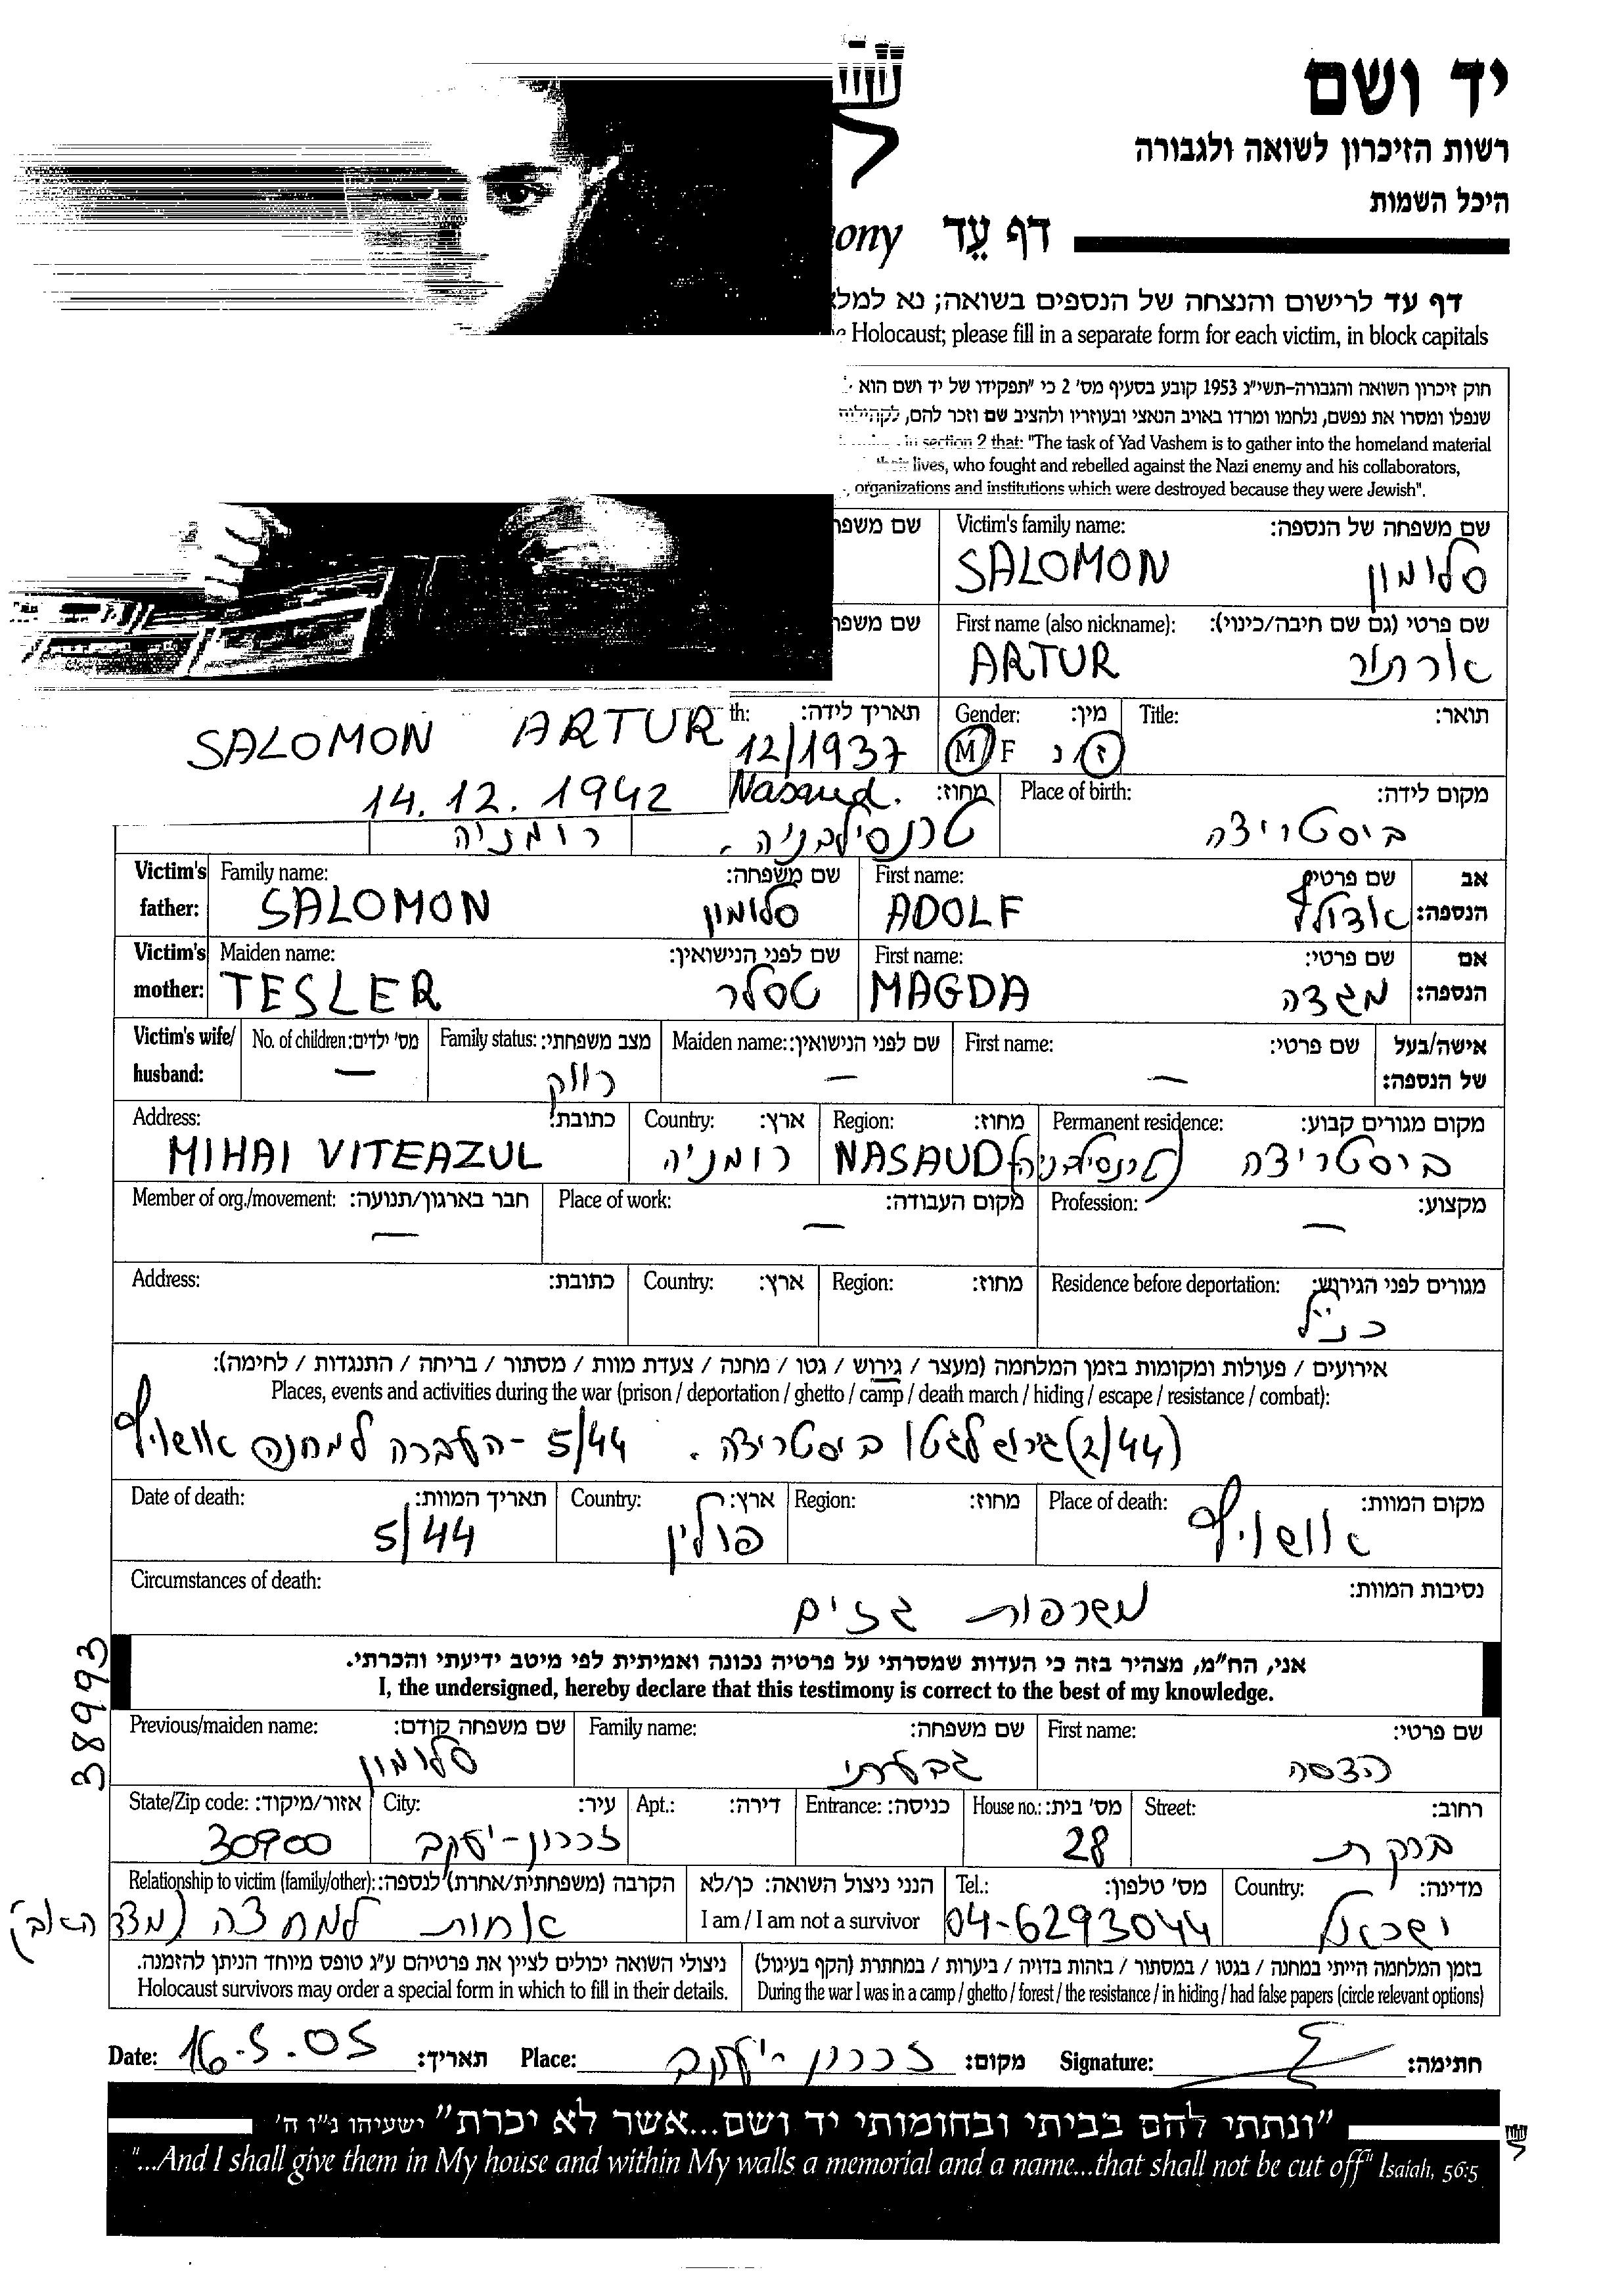 יד ושם
רשות הזיכרון לשואה ולגבורה
היכל השמות
דף עֵד
דף עד לרישום והנצחה של הנספים בשואה; נא למלא
Holocaust; please fill in a separate form for each victim, in block capitals
חוק זיכרון השואה והגבורה-תשי"ג 1953 קובע בסעיף מס' 2 כי "תפקידו של יד ושם הוא
שנפלו ומסרו את נפשם, נלחמו ומרדו באויב הנאצי ובעוזריו ולהציב שם וזכר להם, לקהילות
in section 2 that: "The task of Yad Vashem is to gather into the homeland material
their lives, who fought and rebelled against the Nazi enemy and his collaborators,
organizations and institutions which were destroyed because they were Jewish".
שם משפחה של הנספה: Victim's family name: שם
סלומון SALOMON
שם פרטי (גם שם חיבה/כינוי): First name (also nickname): שם
ארתור ARTUR
תואר: Title: מין: Gender: תאריך לידה:
ז נ M F 12/1937
SALOMON ARTUR
14.12.1942
מקום לידה: Place of birth: מחוז: Nasaud.
ביסטריצה טרנסילבניה. רומניה
Victim's father: Family name: שם משפחה: First name: שם פרטי: אב הנספה:
SALOMON סלומון ADOLF אדולף
Victim's mother: Maiden name: שם לפני הנישואין: First name: שם פרטי: אם הנספה:
TESLER טסלר MAGDA מגדה
Victim's wife/ husband: No. of children: מס' ילדים: Family status: מצב משפחתי: Maiden name: שם לפני הנישואין: First name: שם פרטי: אישה/בעל של הנספה:
— רווק — —
Address: כתובת: Country: ארץ: Region: מחוז: Permanent residence: מקום מגורים קבוע:
MIHAI VITEAZUL רומניה NASAUD טרנסילבניה ביסטריצה
Member of org./movement: חבר בארגון/תנועה: Place of work: מקום העבודה: Profession: מקצוע:
— — —
Address: כתובת: Country: ארץ: Region: מחוז: Residence before deportation: מגורים לפני הגירוש:
כנ"ל
אירועים / פעולות ומקומות בזמן המלחמה (מעצר / גירוש / גטו / מחנה / צעדת מוות / מסתור / בריחה / התנגדות / לחימה):
Places, events and activities during the war (prison / deportation / ghetto / camp / death march / hiding / escape / resistance / combat):
(2/44) גירוש לגטו ביסטריצה. 5/44 - העברה למחנה אושויץ
Date of death: תאריך המוות: Country: ארץ: Region: מחוז: Place of death: מקום המוות:
5/44 פולין אושויץ
Circumstances of death: נסיבות המוות:
משרפות גזים
אני, הח"מ, מצהיר בזה כי העדות שמסרתי על פרטיה נכונה ואמיתית לפי מיטב ידיעתי והכרתי.
I, the undersigned, hereby declare that this testimony is correct to the best of my knowledge.
38993
Previous/maiden name: שם משפחה קודם: Family name: שם משפחה: First name: שם פרטי:
סלומון גבעתי הדסה
State/Zip code: אזור/מיקוד: City: עיר: Apt.: דירה: Entrance: כניסה: House no.: מס' בית: Street: רחוב:
30900 זכרון-יעקב 28 ברקת
Relationship to victim (family/other): הקרבה (משפחתית/אחרת) לנספה: הנני ניצול השואה: כן/לא Tel.: מס' טלפון: Country: מדינה:
אחות למחצה (מצד האב) I am / I am not a survivor 04-6293044 ישראל
ניצולי השואה יכולים לציין את פרטיהם ע"ג טופס מיוחד הניתן להזמנה. בזמן המלחמה הייתי במחנה / בגטו / במסתור / בזהות בדויה / ביערות / במחתרת (הקף בעיגול)
Holocaust survivors may order a special form in which to fill in their details. During the war I was in a camp / ghetto / forest / the resistance / in hiding / had false papers (circle relevant options)
Date: 16.5.05 תאריך: Place: זכרון-יעקב מקום: Signature: חתימה:
"ונתתי להם בביתי ובחומותי יד ושם...אשר לא יכרת" ישעיהו נ"ו ה'
"...And I shall give them in My house and within My walls a memorial and a name...that shall not be cut off" Isaiah, 56:5